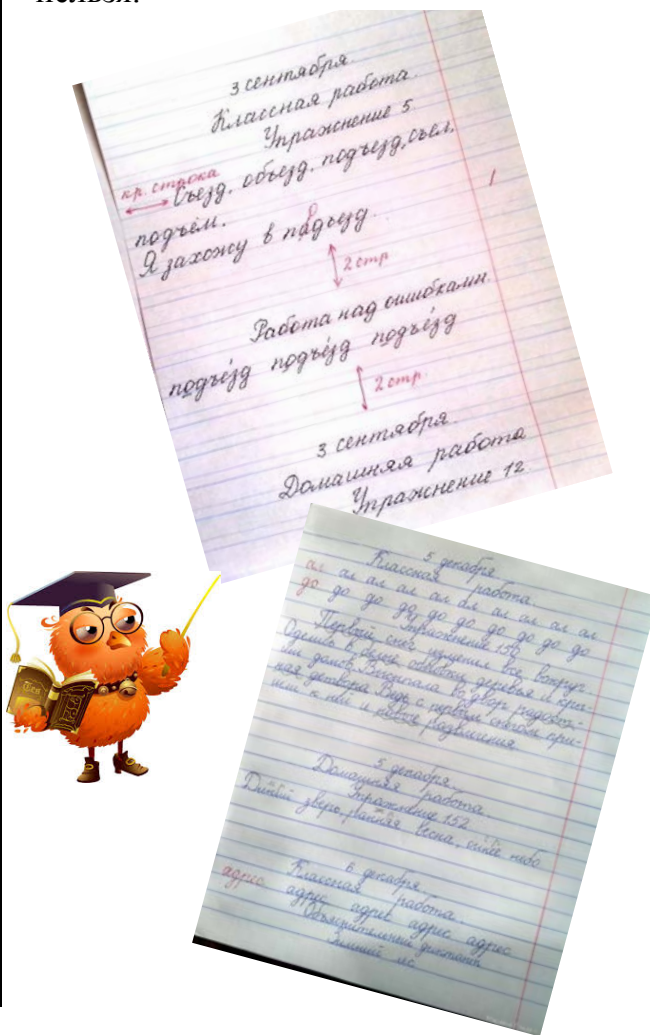 нельзя.
3 сентября.
Классная работа.
Упражнение 5
кр. строка
Съезд, объезд, подъезд, съел,
подъём.
Я захожу в падъезд.
о
2 стр
Работа над ошибками.
подъе́зд подъе́зд подъе́зд
2 стр.
3 сентября.
Домашняя работа
Упражнение 12
5 декабря.
Классная работа.
ал ал ал ал ал ал ал ал ал ал
до до до до до до до до до до
Упражнение
Первый снег изменил всё вокруг.
Оделись в белые деревья и кры-
ши домов. во двор
детвора. с первым снегом
к ней и развлечения
5 декабря.
Домашняя работа.
Упражнение 152
зверь, весна, синее небо
6 декабря.
Классная работа
адрес адрес адрес адрес адрес
Объяснительный диктант
Зимний лес